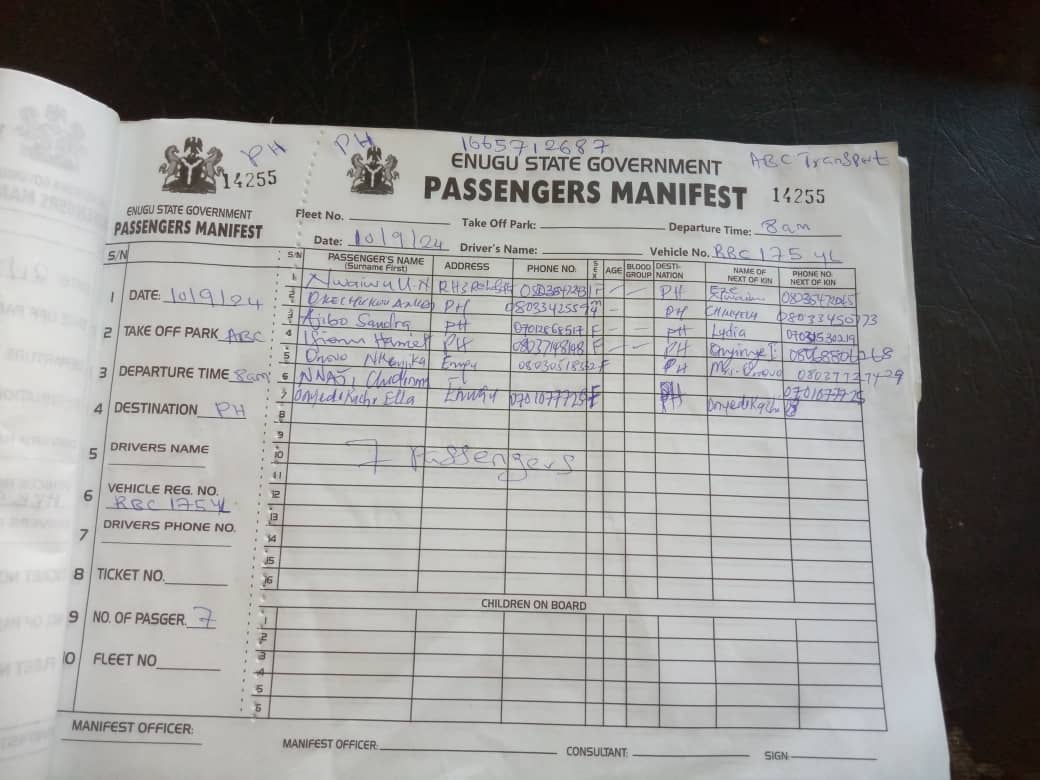 PH
14255
ENUGU STATE GOVERNMENT
PASSENGERS MANIFEST
S/N
1 DATE: 10/9/24
2 TAKE OFF PARK ABC
3 DEPARTURE TIME 8am
4 DESTINATION PH
5 DRIVERS NAME
6 VEHICLE REG. NO.
RBC 175 YL
7 DRIVERS PHONE NO.
8 TICKET NO.
9 NO. OF PASGER. 7
10 FLEET NO
MANIFEST OFFICER:
PH 1665712687 ABC Transport
ENUGU STATE GOVERNMENT
PASSENGERS MANIFEST 14255
Fleet No. Take Off Park: Departure Time: 8am
Date: 10/9/24 Driver's Name: Vehicle No. RBC 175 YL
S/N PASSENGER'S NAME (Surname First) ADDRESS PHONE NO: SEX AGE BLOOD GROUP DESTINATION NAME OF NEXT OF KIN PHONE NO. NEXT OF KIN
1 F PH
2 PH PH 08033450773
3 Ajibo Sandra PH F PH Lydia
4 Harriet PH F PH
5 Onovo Enugu F PH Mrs. Onovo 08037737429
6
7 Onyedikachi Ella Enugu F PH Onyedikachi
8
9
10 7 Passengers
11
12
13
14
15
16
CHILDREN ON BOARD
1
2
3
4
5
6
MANIFEST OFFICER: CONSULTANT: SIGN: